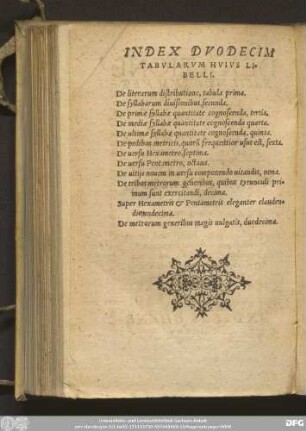 INDEX DVODECIM
TABVLARVM HVIVS LI-
BELLI.
De literarum distributione, tabula prima.
De syllabarum diuisionibus, secunda.
De primæ syllabæ quantitate cognoscenda, tertia.
De mediæ syllabæ quantitate cognoscenda quarta.
De ultimæ syllabæ quantitate cognoscenda, quinta.
De pedibus metricis, quorū frequentior usus est, sexta.
De uersu Hexametro, septima.
De uersu Pentametro, octaua.
De uitijs nouem in uersu componendo uitandis, nona.
De tribus metrorum generibus, quibus tyrunculi pri-
mum sunt exercitandi, decima.
Super Hexametris & Pentametris eleganter claudendis
undecima.
De metrorum generibus magis uulgatis, duodecima.
DFG